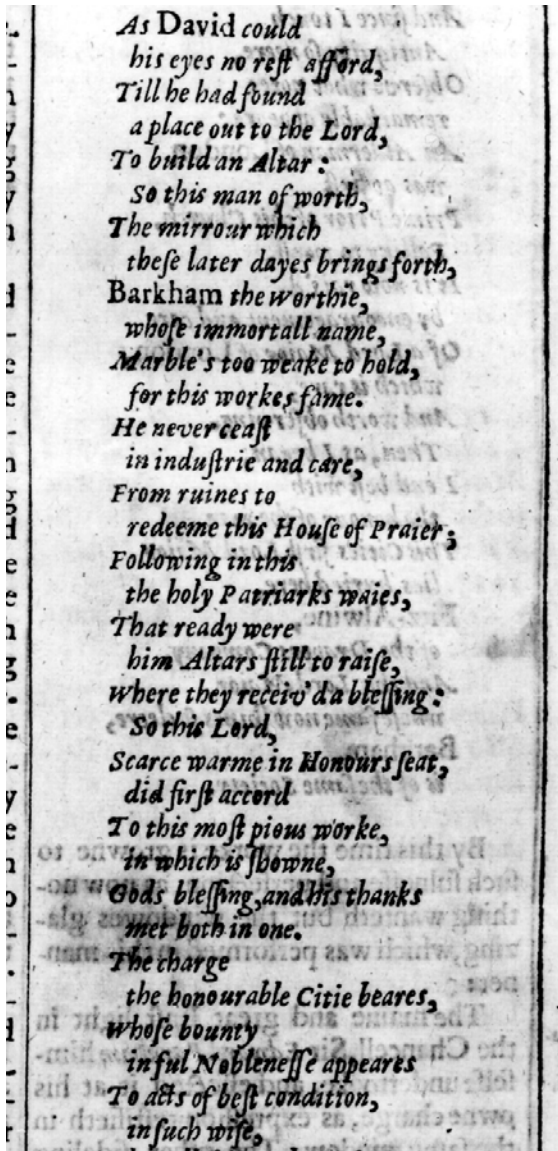 As David could
his eyes no reſt afford,
Till he had found
a place out to the Lord,
To build an Altar:
So this man of worth,
The mirrour which
theſe later dayes brings forth,
Barkham the worthie,
whoſe immortall name,
Marble's too weake to hold,
for this workes fame.
He never ceaſt
in induſtrie and care,
From ruines to
redeeme this Houſe of Praier;
Following in this
the holy Patriarks waies,
That ready were
him Altars ſtill to raiſe,
Where they receiv'd a bleſſing:
So this Lord,
Scarce warme in Honours ſeat,
did firſt accord
To this moſt pious worke,
in which is ſhowne,
Gods bleſſing, and his thanks
met both in one.
The charge
the honourable Citie beares,
Whoſe bounty
in ful Nobleneſſe appeares
To acts of beſt condition,
in ſuch wiſe,